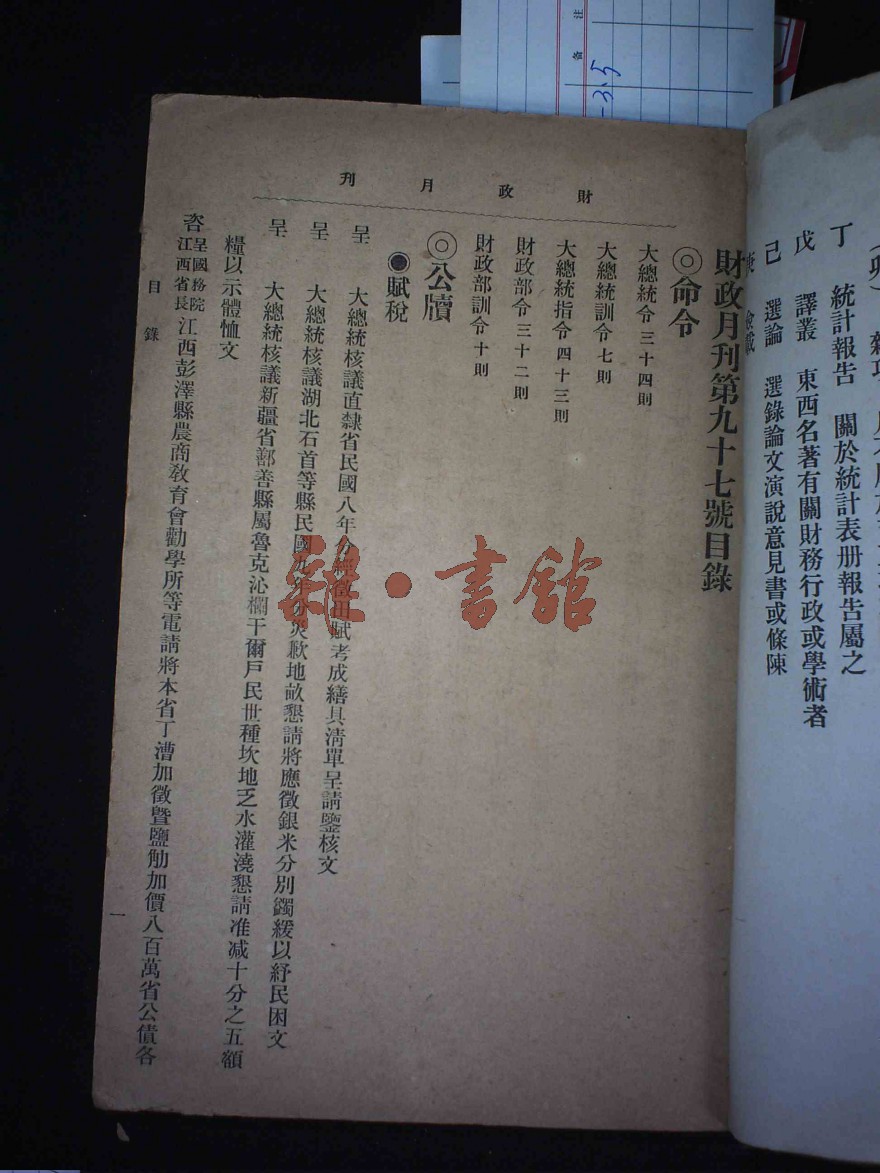 丁　統計報告　關於統計表册報告屬之
戊　譯叢　東西名著有關財務行政或學術者
己　選論　選錄論文演說意見書或條陳
財政月刊
財政月刊第九十七號目錄
◎命令
大總統令三十四則
大總統訓令七則
大總統指令四十三則
財政部令三十二則
財政部訓令十則
◎公牘
●賦稅
呈　大總統核議直隸省民國八年分經徵田賦考成繕具清單呈請鑒核文
呈　大總統核議湖北石首等縣民國九年分災歉地畝懇請將應徵銀米分別蠲緩以紓民困文
呈　大總統核議新疆省鄯善縣屬魯克沁欄干爾戶民世種坎地乏水灌澆懇請准減十分之五額
糧以示體恤文
咨呈國務院江西省長江西彭澤縣農商教育會勸學所等電請將本省丁漕加徵暨鹽觔加價八百萬省公債各
目錄
一
雜·書館
備注
-3.5